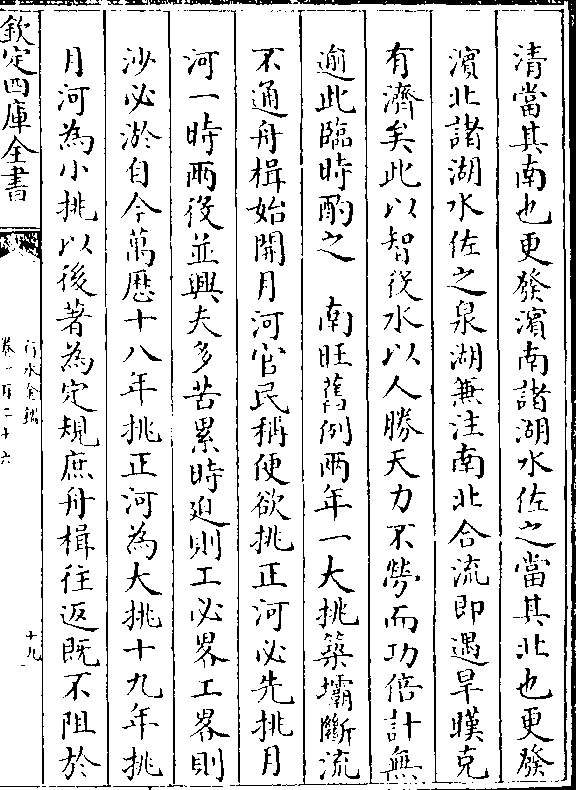 清當其南也更發濵南諸湖水佐之當其北也更發
濵北諸湖水佐之泉湖兼注南北合流即遇旱暵克
有濟矣此以智役水以人勝天力不勞而功倍計無
逾此臨時酌之　南旺舊例兩年一大挑築壩斷流
不通舟楫始開月河官民稱便欲挑正河必先挑月
河一時兩役並興夫多苦累時廹則工必畧工畧則
沙必淤自今萬厯十八年挑正河為大挑十九年挑
月河為小挑以後著為定規庶舟楫往返既不阻於
欽定四庫全書
行水金鑑
卷一百二十六
十九